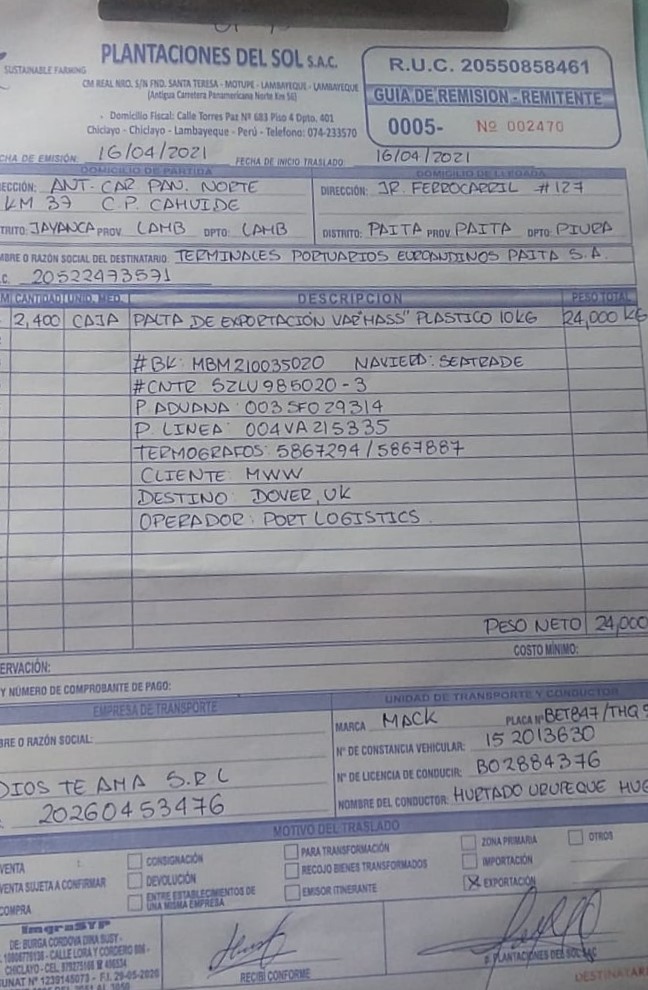 SUSTAINABLE FARMING
PLANTACIONES DEL SOL S.A.C.
CM REAL NRO. S/N FND. SANTA TERESA - MOTUPE - LAMBAYEQUE - LAMBAYEQUE
(Antigua Carretera Panamericana Norte Km 56)
Domicilio Fiscal: Calle Torres Paz Nº 683 Piso 4 Dpto. 401
Chiclayo - Chiclayo - Lambayeque - Perú - Telefono: 074-233570
R.U.C. 20550858461
GUIA DE REMISION - REMITENTE
0005- Nº 002470
CHA DE EMISIÓN: 16/04/2021 FECHA DE INICIO TRASLADO: 16/04/2021
DOMICILIO DE PARTIDA DOMICILIO DE LLEGADA
ECCIÓN: ANT. CAR PAN. NORTE DIRECCIÓN: JR. FERROCARRIL #127
KM 37 C.P. CAHUIDE
TRITO: JAYANCA PROV. LAMB DPTO: LAMB DISTRITO: PAITA PROV. PAITA DPTO: PIURA
MBRE O RAZÓN SOCIAL DEL DESTINATARIO: TERMINALES PORTUARIOS EUROANDINOS PAITA S.A.
C. 20522473571
M CANTIDAD UNID. MED. DESCRIPCION PESO TOTAL
2,400 CAJA PALTA DE EXPORTACIÓN VAR"HASS" PLASTICO 10KG 24,000 KG
#BK: MBM210035020 NAVIERA: SEATRADE
#CNTR SZLU 985020-3
P. ADUANA: 003SF029314
P. LINEA: 004VA215335
TERMOGRAFOS: 5867294/5867887
CLIENTE: MWW
DESTINO: DOVER, UK
OPERADOR: PORT LOGISTICS.
PESO NETO 24,000
ERVACIÓN: COSTO MÍNIMO:
Y NÚMERO DE COMPROBANTE DE PAGO:
EMPRESA DE TRANSPORTE UNIDAD DE TRANSPORTE Y CONDUCTOR
MARCA MACK PLACA Nº BET847/THG9
BRE O RAZÓN SOCIAL: Nº DE CONSTANCIA VEHICULAR: 15 2013630
DIOS TE AMA S.R.L Nº DE LICENCIA DE CONDUCIR: B02884376
20260453476 NOMBRE DEL CONDUCTOR: HURTADO URUPEQUE HUG
MOTIVO DEL TRASLADO
VENTA CONSIGNACIÓN PARA TRANSFORMACIÓN ZONA PRIMARIA OTROS
VENTA SUJETA A CONFIRMAR DEVOLUCIÓN RECOJO BIENES TRANSFORMADOS IMPORTACIÓN
COMPRA ENTRE ESTABLECIMIENTOS DE UNA MISMA EMPRESA EMISOR ITINERANTE X EXPORTACIÓN
ImgraSYP
DE: BURGA CORDOVA DINA SUSY -
- CALLE LORA Y CORDERO
CHICLAYO - CEL.
SUNAT Nº 1239145073 - F.I. 29-05-2020
RECIBÍ CONFORME
P. PLANTACIONES DEL SOL SAC
DESTINATAR